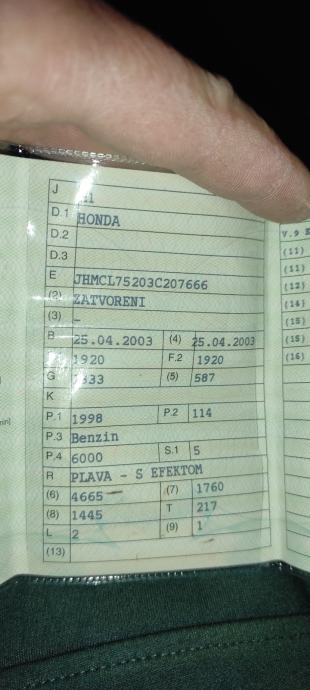 J M1
D.1 HONDA
D.2
D.3
E JHMCL75203C207666
(2) ZATVORENI
(3) –
B 25.04.2003 (4) 25.04.2003
1920 F.2 1920
G (5) 587
K
P.1 1998 P.2 114
P.3 Benzin
P.4 6000 S.1 5
R PLAVA - S EFEKTOM
(6) 4665 (7) 1760
(8) 1445 T 217
L 2 (9) 1
(13)
V.9
(11)
(11)
(12)
(14)
(15)
(15)
(16)